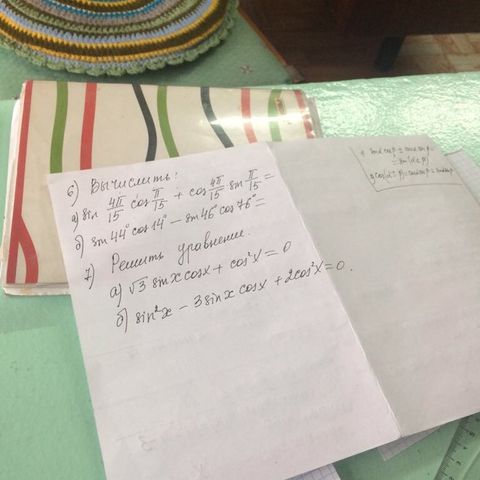 6) Вычислить:
а) sin 4π/15 cos π/15 + cos 4π/15 sin π/15 =
б) sin 44° cos 14° − sin 46° cos 76° =
7) Решить уравнения.
а) √3 sin x cos x + cos²x = 0
б) sin²x − 3 sin x cos x + 2cos²x = 0.